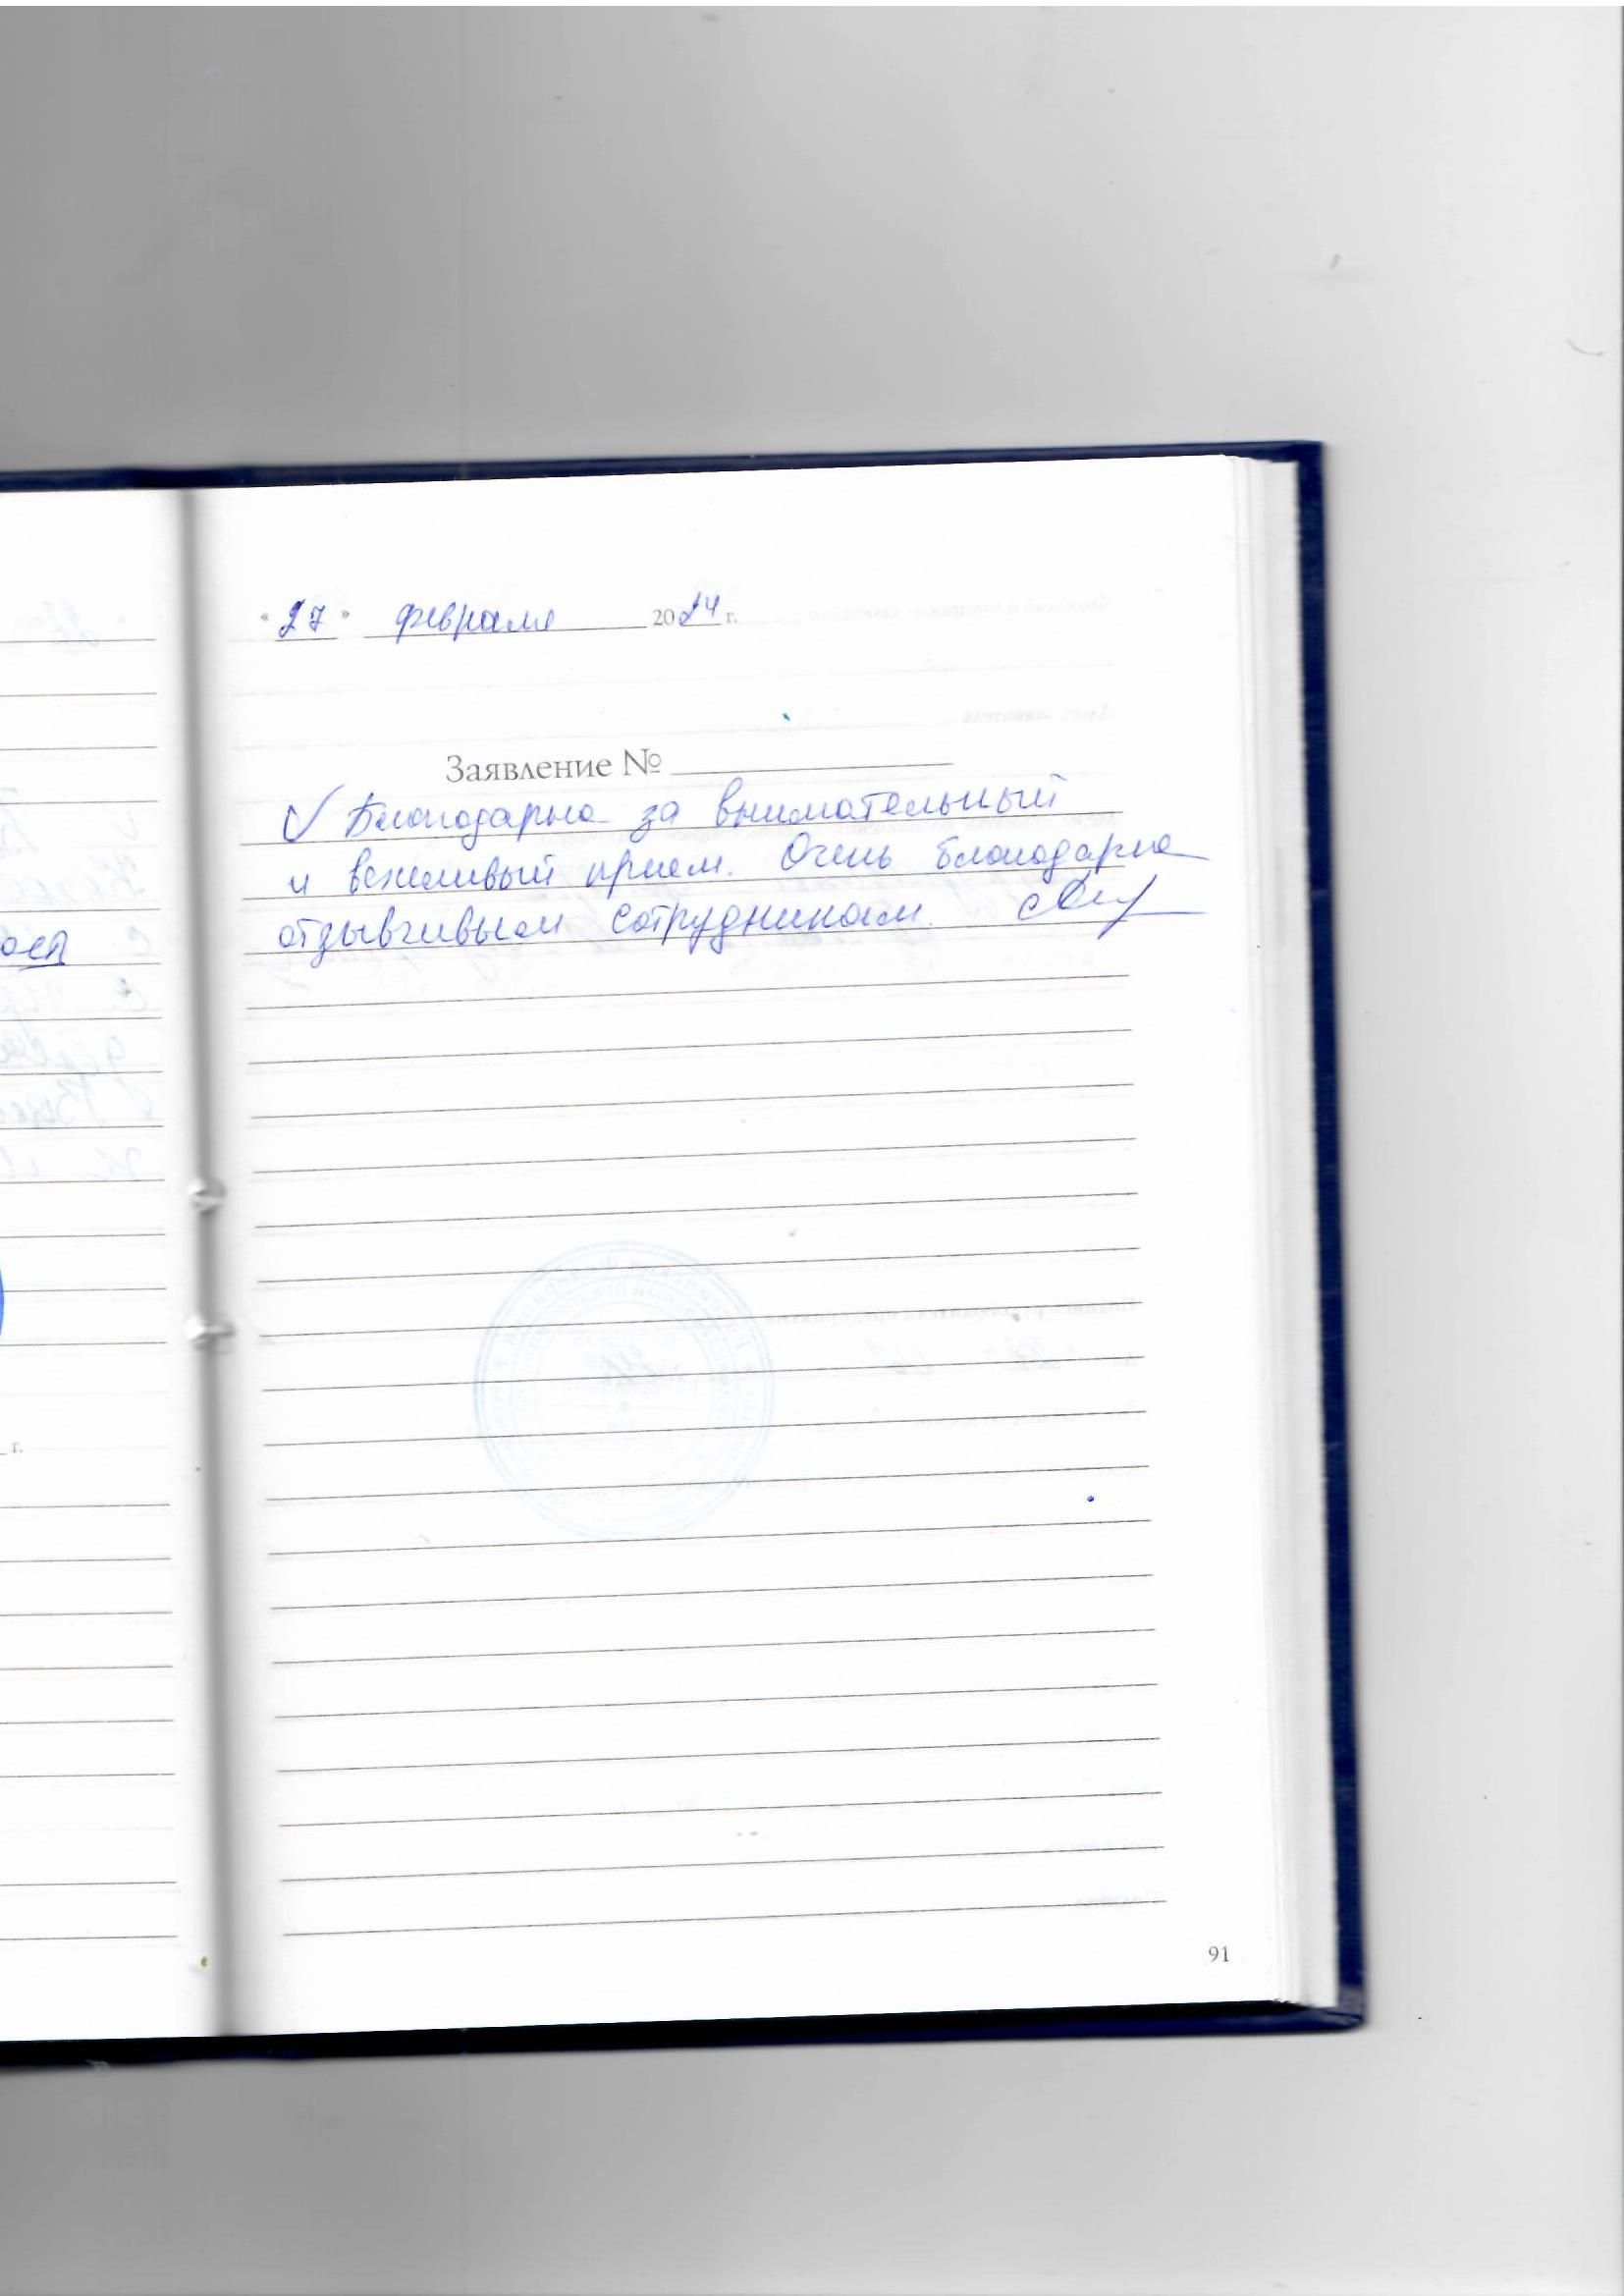 « 27 » февраля 2024 г.
Заявление №
Благодарна за внимательный
и вежливый прием. Очень благодарна
отзывчивым сотрудникам.
г.
91